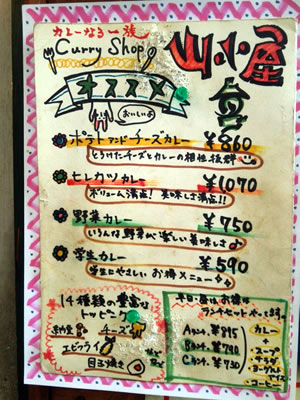 カレーなる一族
Curry Shop
山小屋
オススメ
おいしいよ
ポテトアンドチーズカレー ¥860
とろけたチーズとカレーの相性抜群
ヒレカツカレー ¥1070
ボリューム満点！美味しさ満点！！
野菜カレー ¥750
いろんな野菜が楽しい美味しさ♪
学生カレー ¥590
学生にやさしいお得メニュー
14種類の豊富な
トッピング
納豆 チーズ
エビフライ
目玉焼き
などなど
平日・昼はお得な
ランチセットがあります。
Aランチ ¥995
Bランチ ¥790
Cランチ ¥730
カレー
+
・スープ
・サラダ
・ヨーグルト
アイス
・コーヒー